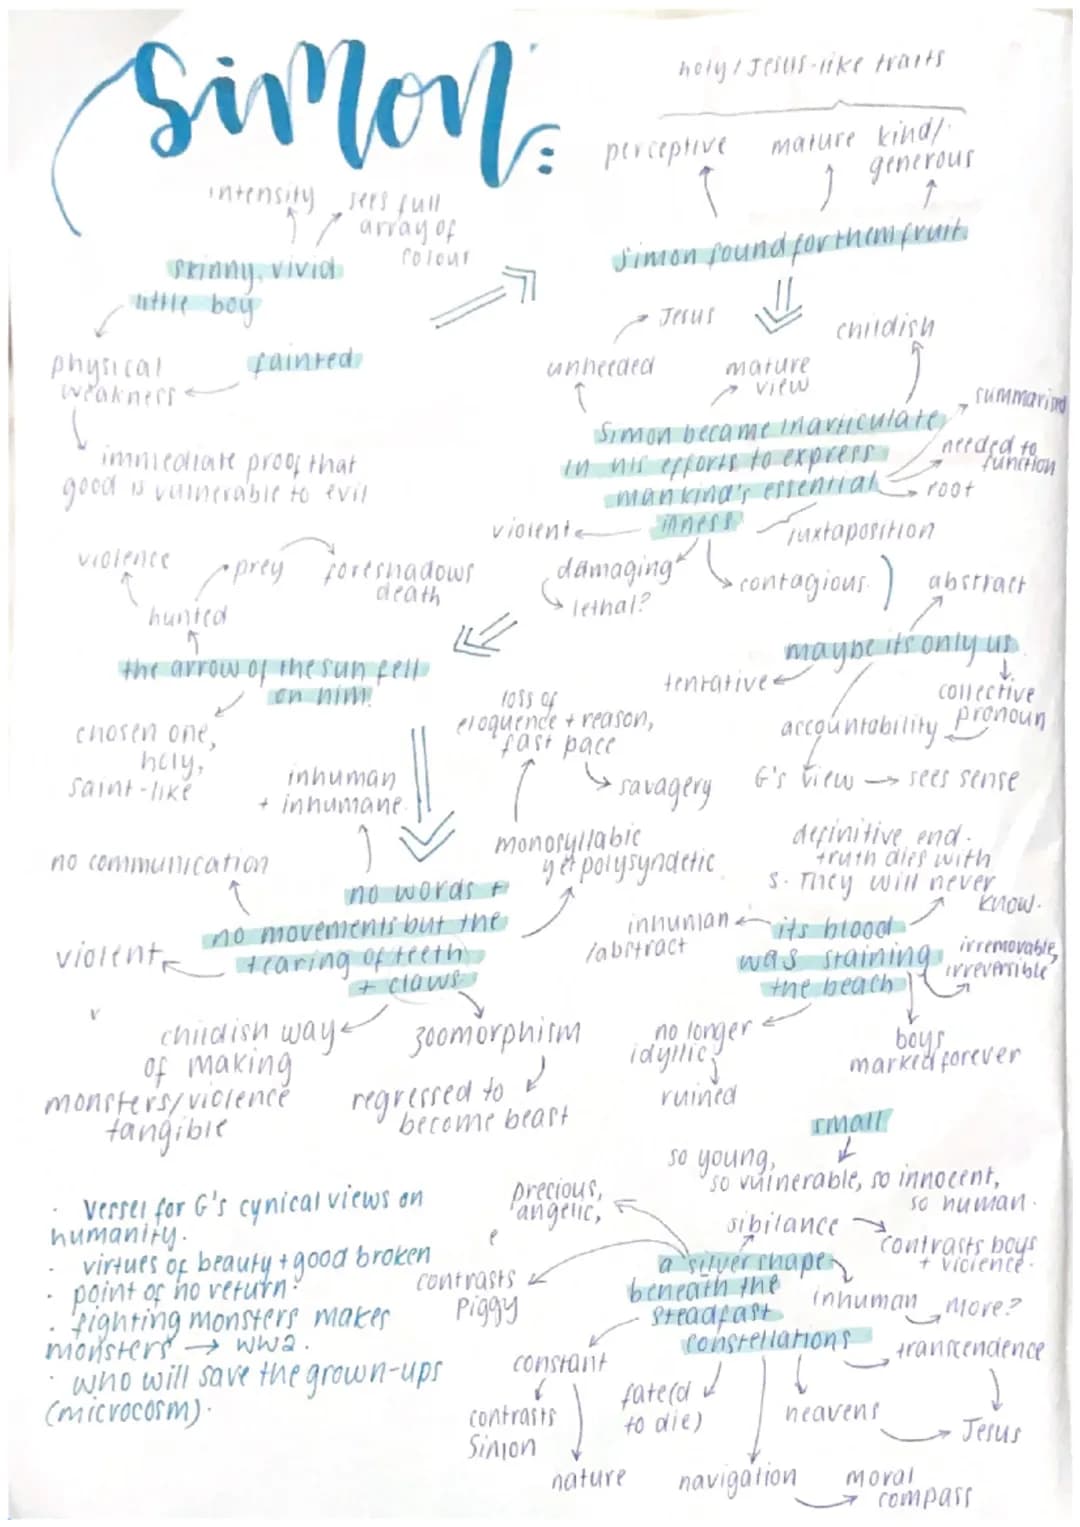 Simon:
holy / Jesus-like traits
perceptive
mature
kind/
generous
Simon found for them fruit.
intensity
sees full
array of
colour
skinny, vivid
little boy
physical
weakness
fainted
immediate proof that
good is vulnerable to evil
Jesus
unheeded
mature
view
childish
summarised
needed to
function
root
Simon became inarticulate
in his efforts to express
mankind's essential
illness
violent
juxtaposition
damaging
lethal?
contagious
abstract
maybe its only us
tentative
collective
pronoun
accountability
G's view → sees sense
violence
prey
foreshadows
death
hunted
the arrow of the sun fell
on him.
chosen one,
holy,
saint-like
loss of
eloquence + reason,
fast pace
savagery
inhuman
+ inhumane
monosyllabic
yet polysyndetic
no communication
no words +
no movements but the
tearing of teeth
+ claws
violent
childish way
of making
monsters/violence
tangible
zoomorphism
regressed to
become beast
definitive end.
truth dies with
S. They will never
know.
inhuman
/abstract
its blood
was staining
the beach
irremovable,
irreversible
no longer
idyllic
ruined
boys
marked forever
small
so young,
so vulnerable, so innocent,
so human.
precious,
angelic,
e
sibilance
contrasts boys
+ violence.
contrasts
Piggy
a silver shape
beneath the
steadfast
constellations
inhuman
more?
transcendence
Jesus
constant
contrasts
Simon
nature
fate(d
to die)
heavens
navigation
moral
compass
· Vessel for G's cynical views on
humanity.
· virtues of beauty + good broken
· point of no return.
· fighting monsters makes
monsters → WW2.
· who will save the grown-ups
(microcosm).